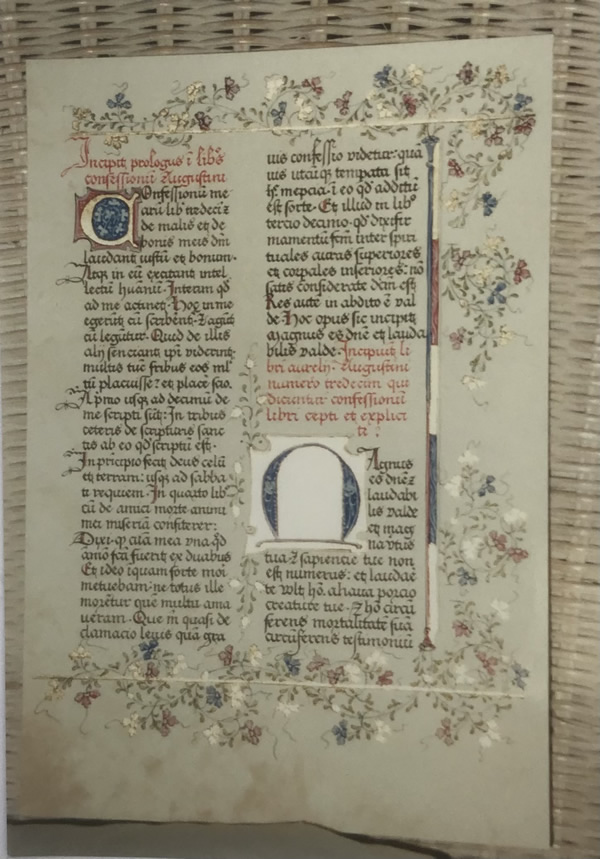 Incipit prologus i libs
confessionū Augustini
Confessionū me
arū lib tredeciz
de malis et de
bonis meis dm̄
laudant iustū et bonum.
Atqꝫ in eū excitant intel
lectū huanū. Interim qd
ad me actinet. Hoc in me
egerūt cū scribent. Z agūt
cū legūtur. Quid de illis
alij senciant ipi viderint
multis tn̄e fribus eos ml̄
tū placuisse? et place scio.
A pmo usqꝫ ad decimū de
me scripti sūt. In tribus
ceteris de scripturis sanc
tis ab eo qd scriptū est.
In pricipio fecit deus celū
et terram: usqꝫ ad sabba
ti requiem. In quarto lib
cū de amici morte animi
mei miseriā confiterer:
Dixi. qꝫ aīa mea vna qd
amō fcā fuerit ex duabus
Et ideo iquam forte mori
metuebam. ne totus ille
moretur quē multū ama
ueram. Que m quasi de
clamacio leuis quā gra
uis confessio videtur: quā
uis utcūqꝫ tempata sit
est forte. Et illud in lib
tercio decimo. qd dixi fir
mamentū fcm inter spiri
tuales aquas superiores
et corpales inferiores: nō
satis considerate dcm est
Res autē in abdito ē val
de. Hoc opus sic incipit
Magnus es dn̄e et lauda
bilis valde. Incipiūt li
bri aurelij Augustini
numero tredecim qui
dicuntur confessionū
libri cepti et explici
ti:
MAgnus
es dn̄e z
laudabi
lis valde
et mag
na vtus
tua. z sapiencie tue non
est numerus: et laudae
te vlt hō. aliqua porcio
creature tue. Z hō circū
ferens mortalitatē suā
circūferens testimoniū